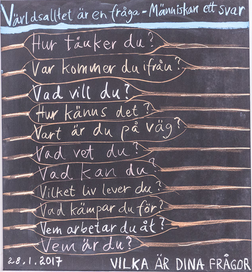 Världsalltet är en fråga - Människan ett svar
Hur tänker du?
Var kommer du ifrån?
Vad vill du?
Hur känns det?
Vart är du på väg?
Vad vet du?
Vad kan du?
Vilket liv lever du?
Vad kämpar du för?
Vem arbetar du åt?
Vem är du?
28.1.2017
VILKA ÄR DINA FRÅGOR